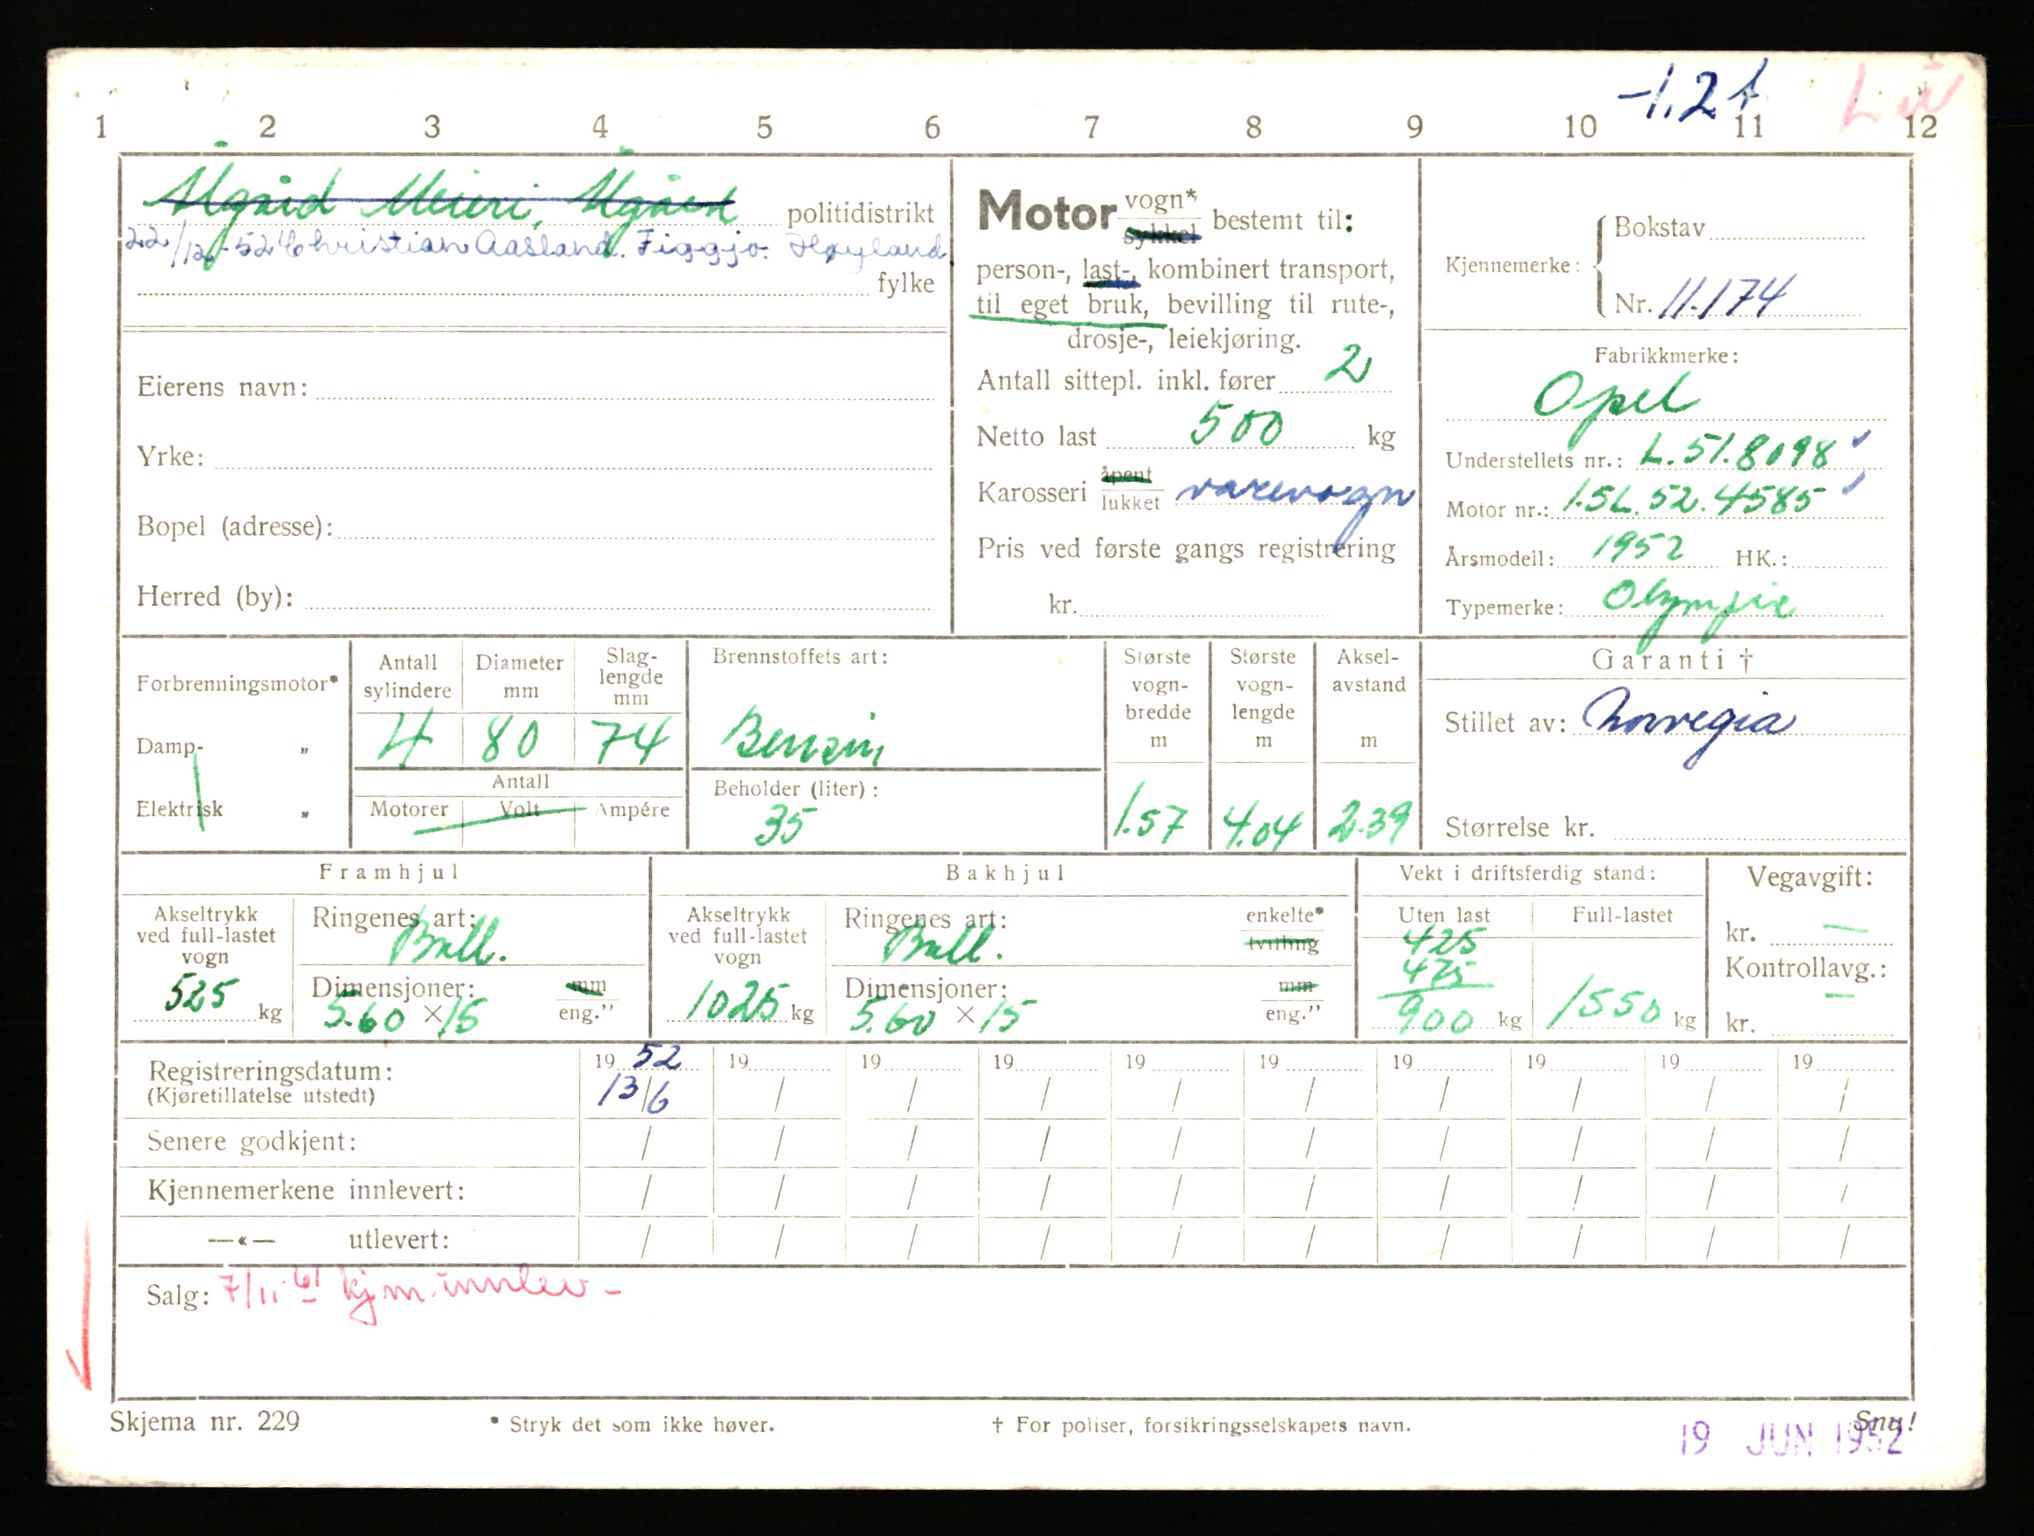 -1.2t Lu
1 2 3 4 5 6 7 8 9 10 11 12
Ålgård Meieri, Ålgård politidistrikt
22/12-52 Christian Aasland. Figgjo. Høyland
fylke
Eierens navn:
Yrke:
Bopel (adresse):
Herred (by):
Motor vogn* sykkel bestemt til:
person-, last-, kombinert transport,
til eget bruk, bevilling til rute-,
drosje-, leiekjøring.
Antall sittepl. inkl. fører 2
Netto last 500 kg
Karosseri åpent lukket varevogn
Pris ved første gangs registrering
kr.
Kjennemerke: Bokstav
Nr. 11.174
Fabrikkmerke:
Opel
Understellets nr.: L.51.8098
Motor nr.: 1.5L.52.4585
Årsmodell: 1952 HK.:
Typemerke: Olympia
Forbrenningsmotor*
Damp- „
Elektrisk „
Antall sylindere
4
Diameter mm
80
Slaglengde mm
74
Antall
Motorer Volt Ampére
Brennstoffets art:
Bensin
Beholder (liter):
35
Største vognbredde m
1.57
Største vognlengde m
4.04
Akselavstand m
2.39
Garanti †
Stillet av: Norvegia
Størrelse kr.
Framhjul
Akseltrykk
ved full-lastet
vogn
525 kg
Ringenes art:
Ball.
Dimensjoner: mm
5.60 × 15 eng.”
Bakhjul
Akseltrykk
ved full-lastet
vogn
1025 kg
Ringenes art: enkelte*
Ball. tvilling
Dimensjoner: mm
5.60 × 15 eng.”
Vekt i driftsferdig stand:
Uten last
425
475
900 kg
Full-lastet
1550 kg
Vegavgift:
kr. —
Kontrollavg.:
—
kr.
Registreringsdatum: 1952 19 19 19 19 19 19 19 19 19
(Kjøretillatelse utstedt) 13/6 / / / / / / / / /
Senere godkjent: / / / / / / / / / /
Kjennemerkene innlevert: / / / / / / / / / /
—«— utlevert: / / / / / / / / / /
Salg: 7/11-61 kjm. innlev -
Skjema nr. 229 * Stryk det som ikke høver. † For poliser, forsikringsselskapets navn. Snu!
19 JUN 1952